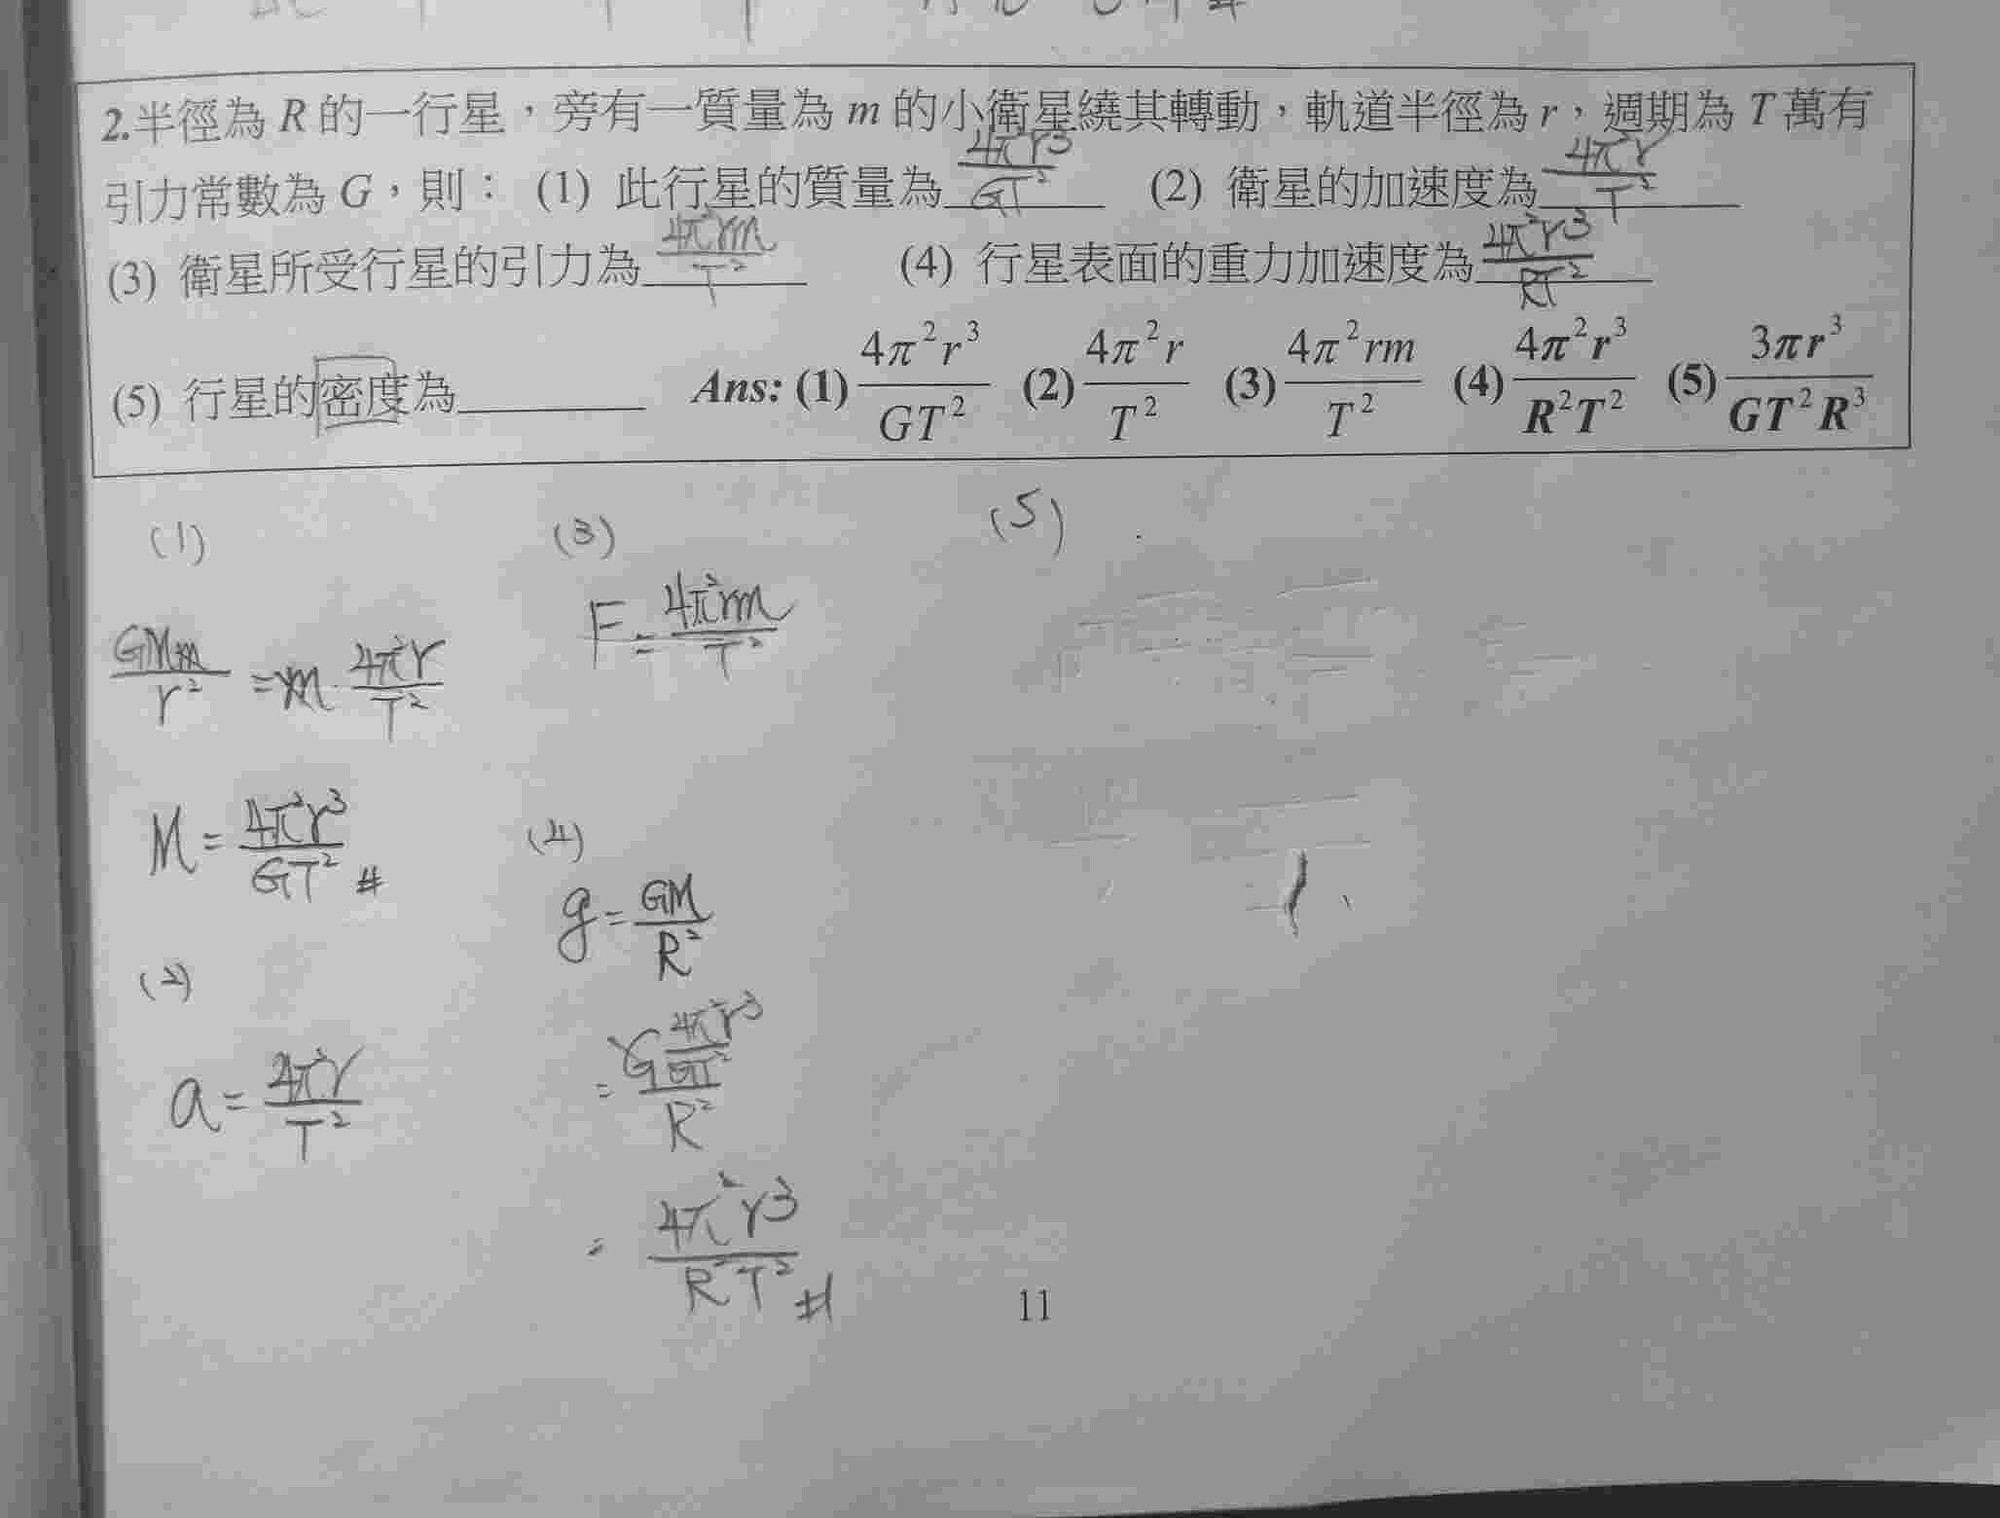 2.半徑為 R 的一行星，旁有一質量為 m 的小衛星繞其轉動，軌道半徑為 r，週期為 T 萬有
引力常數為 G，則： (1) 此行星的質量為 4π²r³/GT² (2) 衛星的加速度為 4π²r/T²
(3) 衛星所受行星的引力為 4π²rm/T² (4) 行星表面的重力加速度為 4π²r³/RT²
(5) 行星的密度為______ Ans: (1) 4π²r³/GT² (2) 4π²r/T² (3) 4π²rm/T² (4) 4π²r³/R²T² (5) 3πr³/GT²R³
(1)
GMm/r² = m · 4π²r/T²
M = 4π²r³/GT² #
(2)
a = 4π²r/T²
(3)
F = 4π²rm/T²
(4)
g = GM/R²
= G 4π²r³/GT² / R²
= 4π²r³/R²T² #
(5)
11